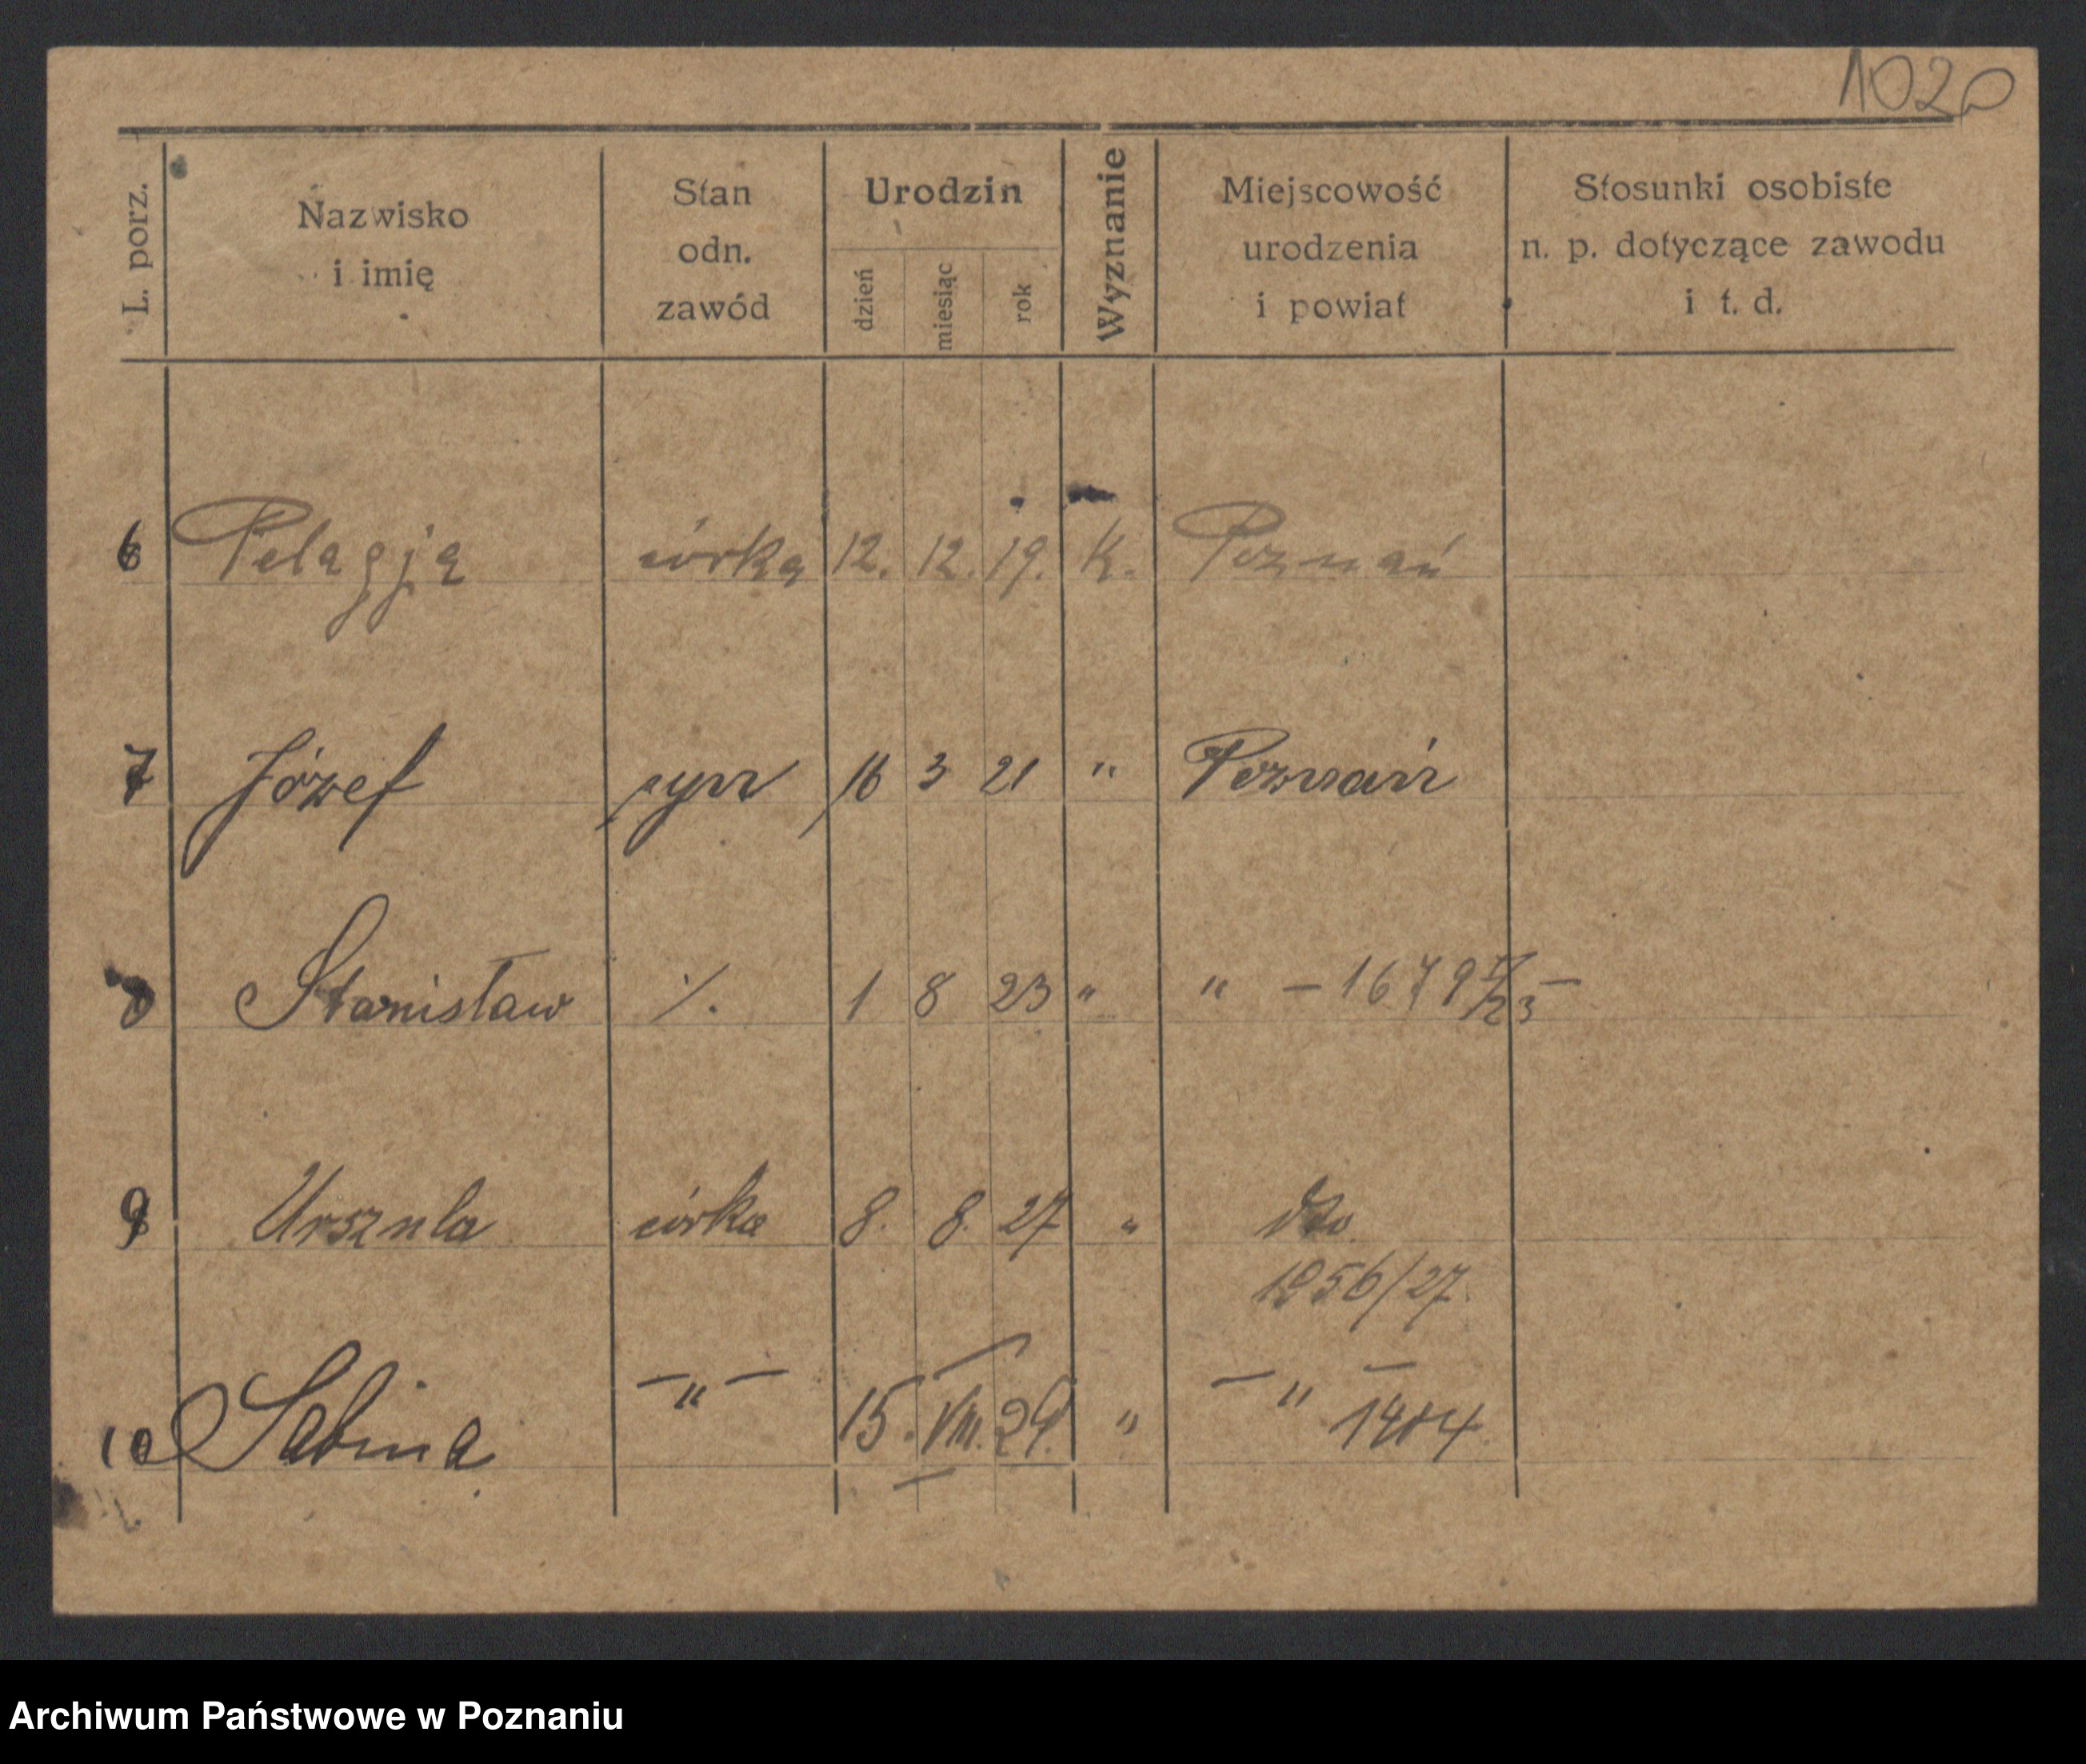 1020
L. porz.
Nazwisko
i imię
Stan
odn.
zawód
Urodzin
dzień
miesiąc
rok
Wyznanie
Miejscowość
urodzenia
i powiat
Stosunki osobiste
n. p. dotyczące zawodu
i t. d.
6 Pelagja córka 12. 12. 19. K. Poznań
7 Józef syn 16 3 21 " Poznań
8 Stanisław ·/. 1 8 23 " " – 1679 /23 –
9 Urszula córka 8. 8. 27 " dto
1956/27.
10 Sabina – " – 15. VIII. 29. " – " –
1484.
Archiwum Państwowe w Poznaniu